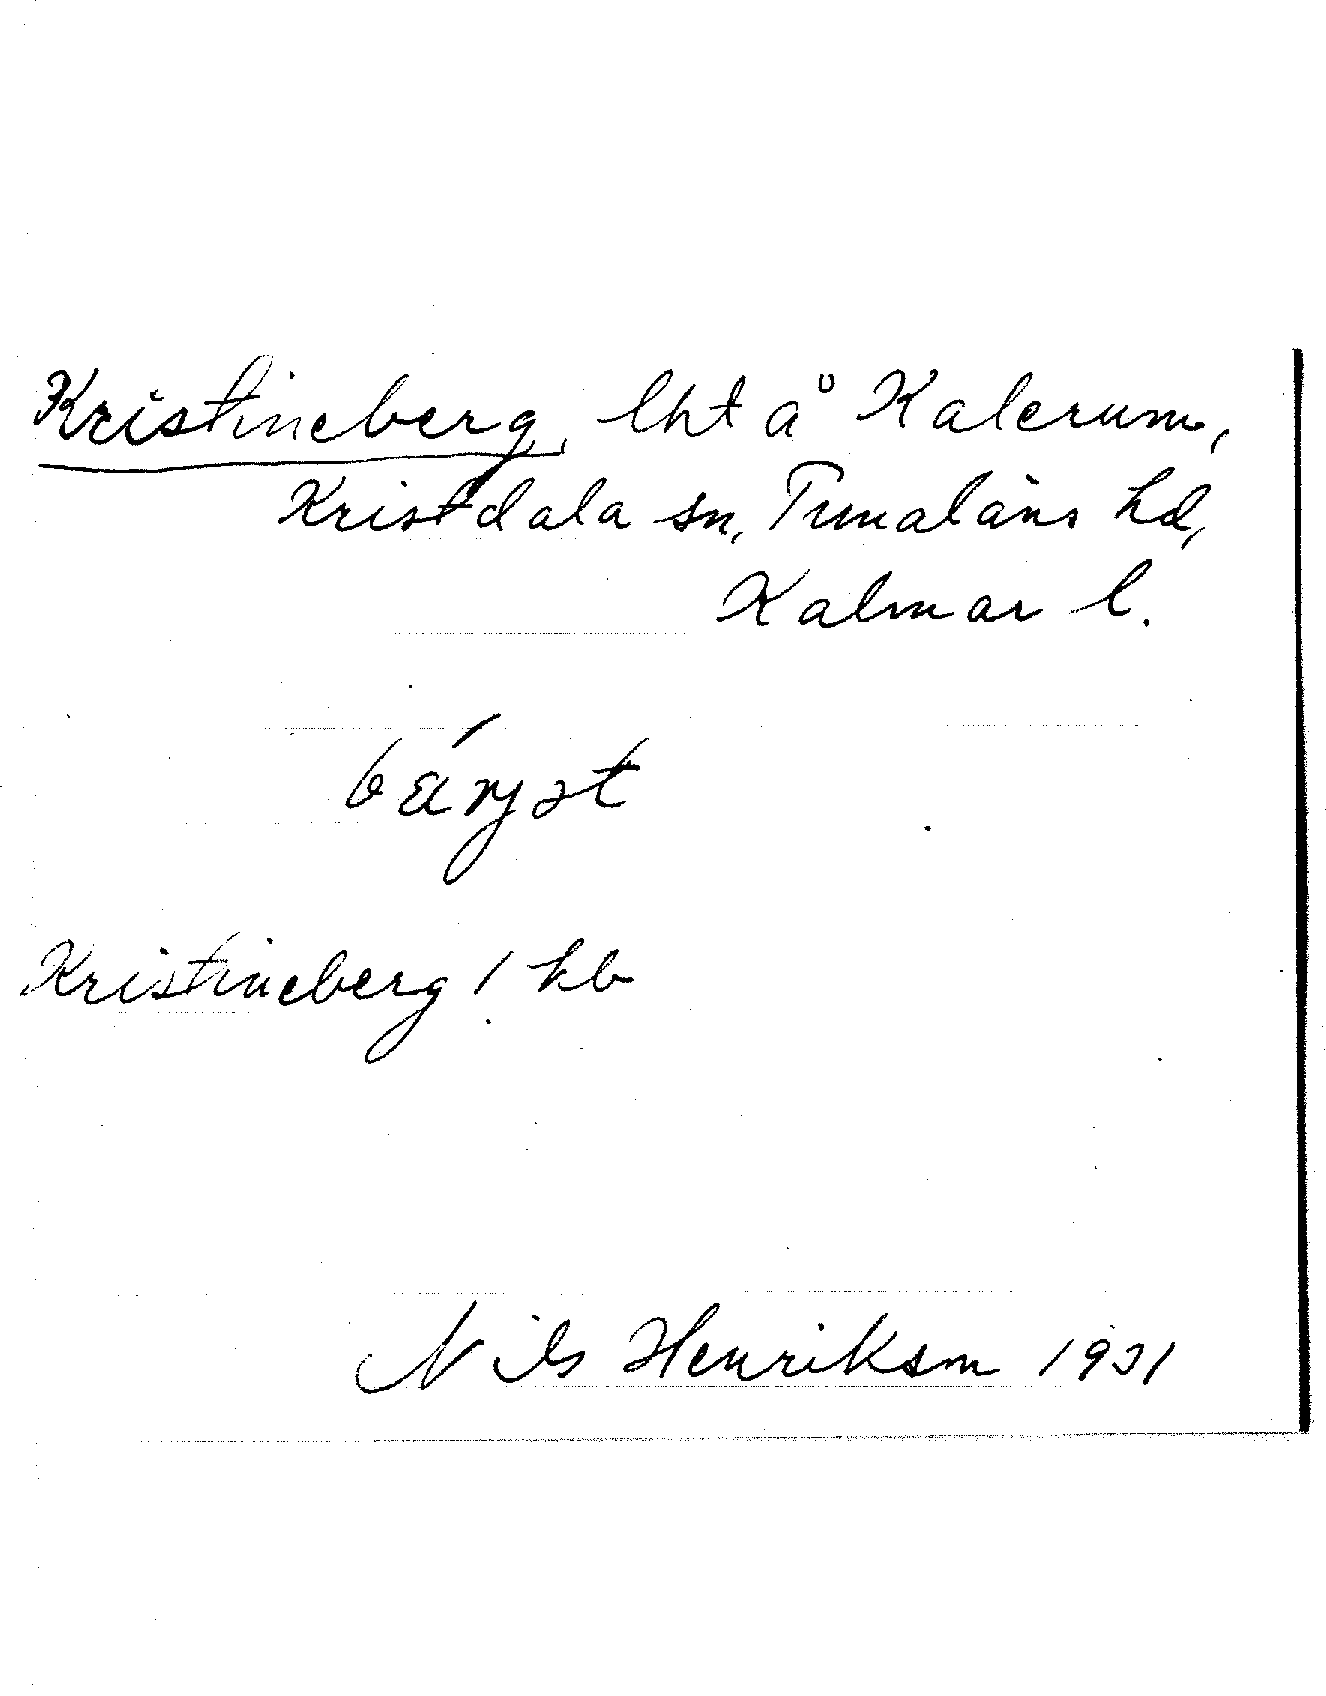 Kristineberg, lht å Kalerum,
Kristdala sn, Tunaläns hd,
Kalmar l.
Kristineberg / kb
Nils Henrikson 1931